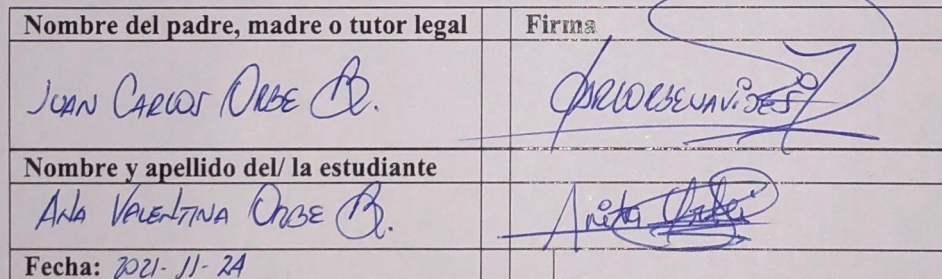 Nombre del padre, madre o tutor legal Firma
JUAN CARLOS ORBE B.
Nombre y apellido del/ la estudiante
ANA VALENTINA ORBE B. Anita Orbe
Fecha: 2021-11-24